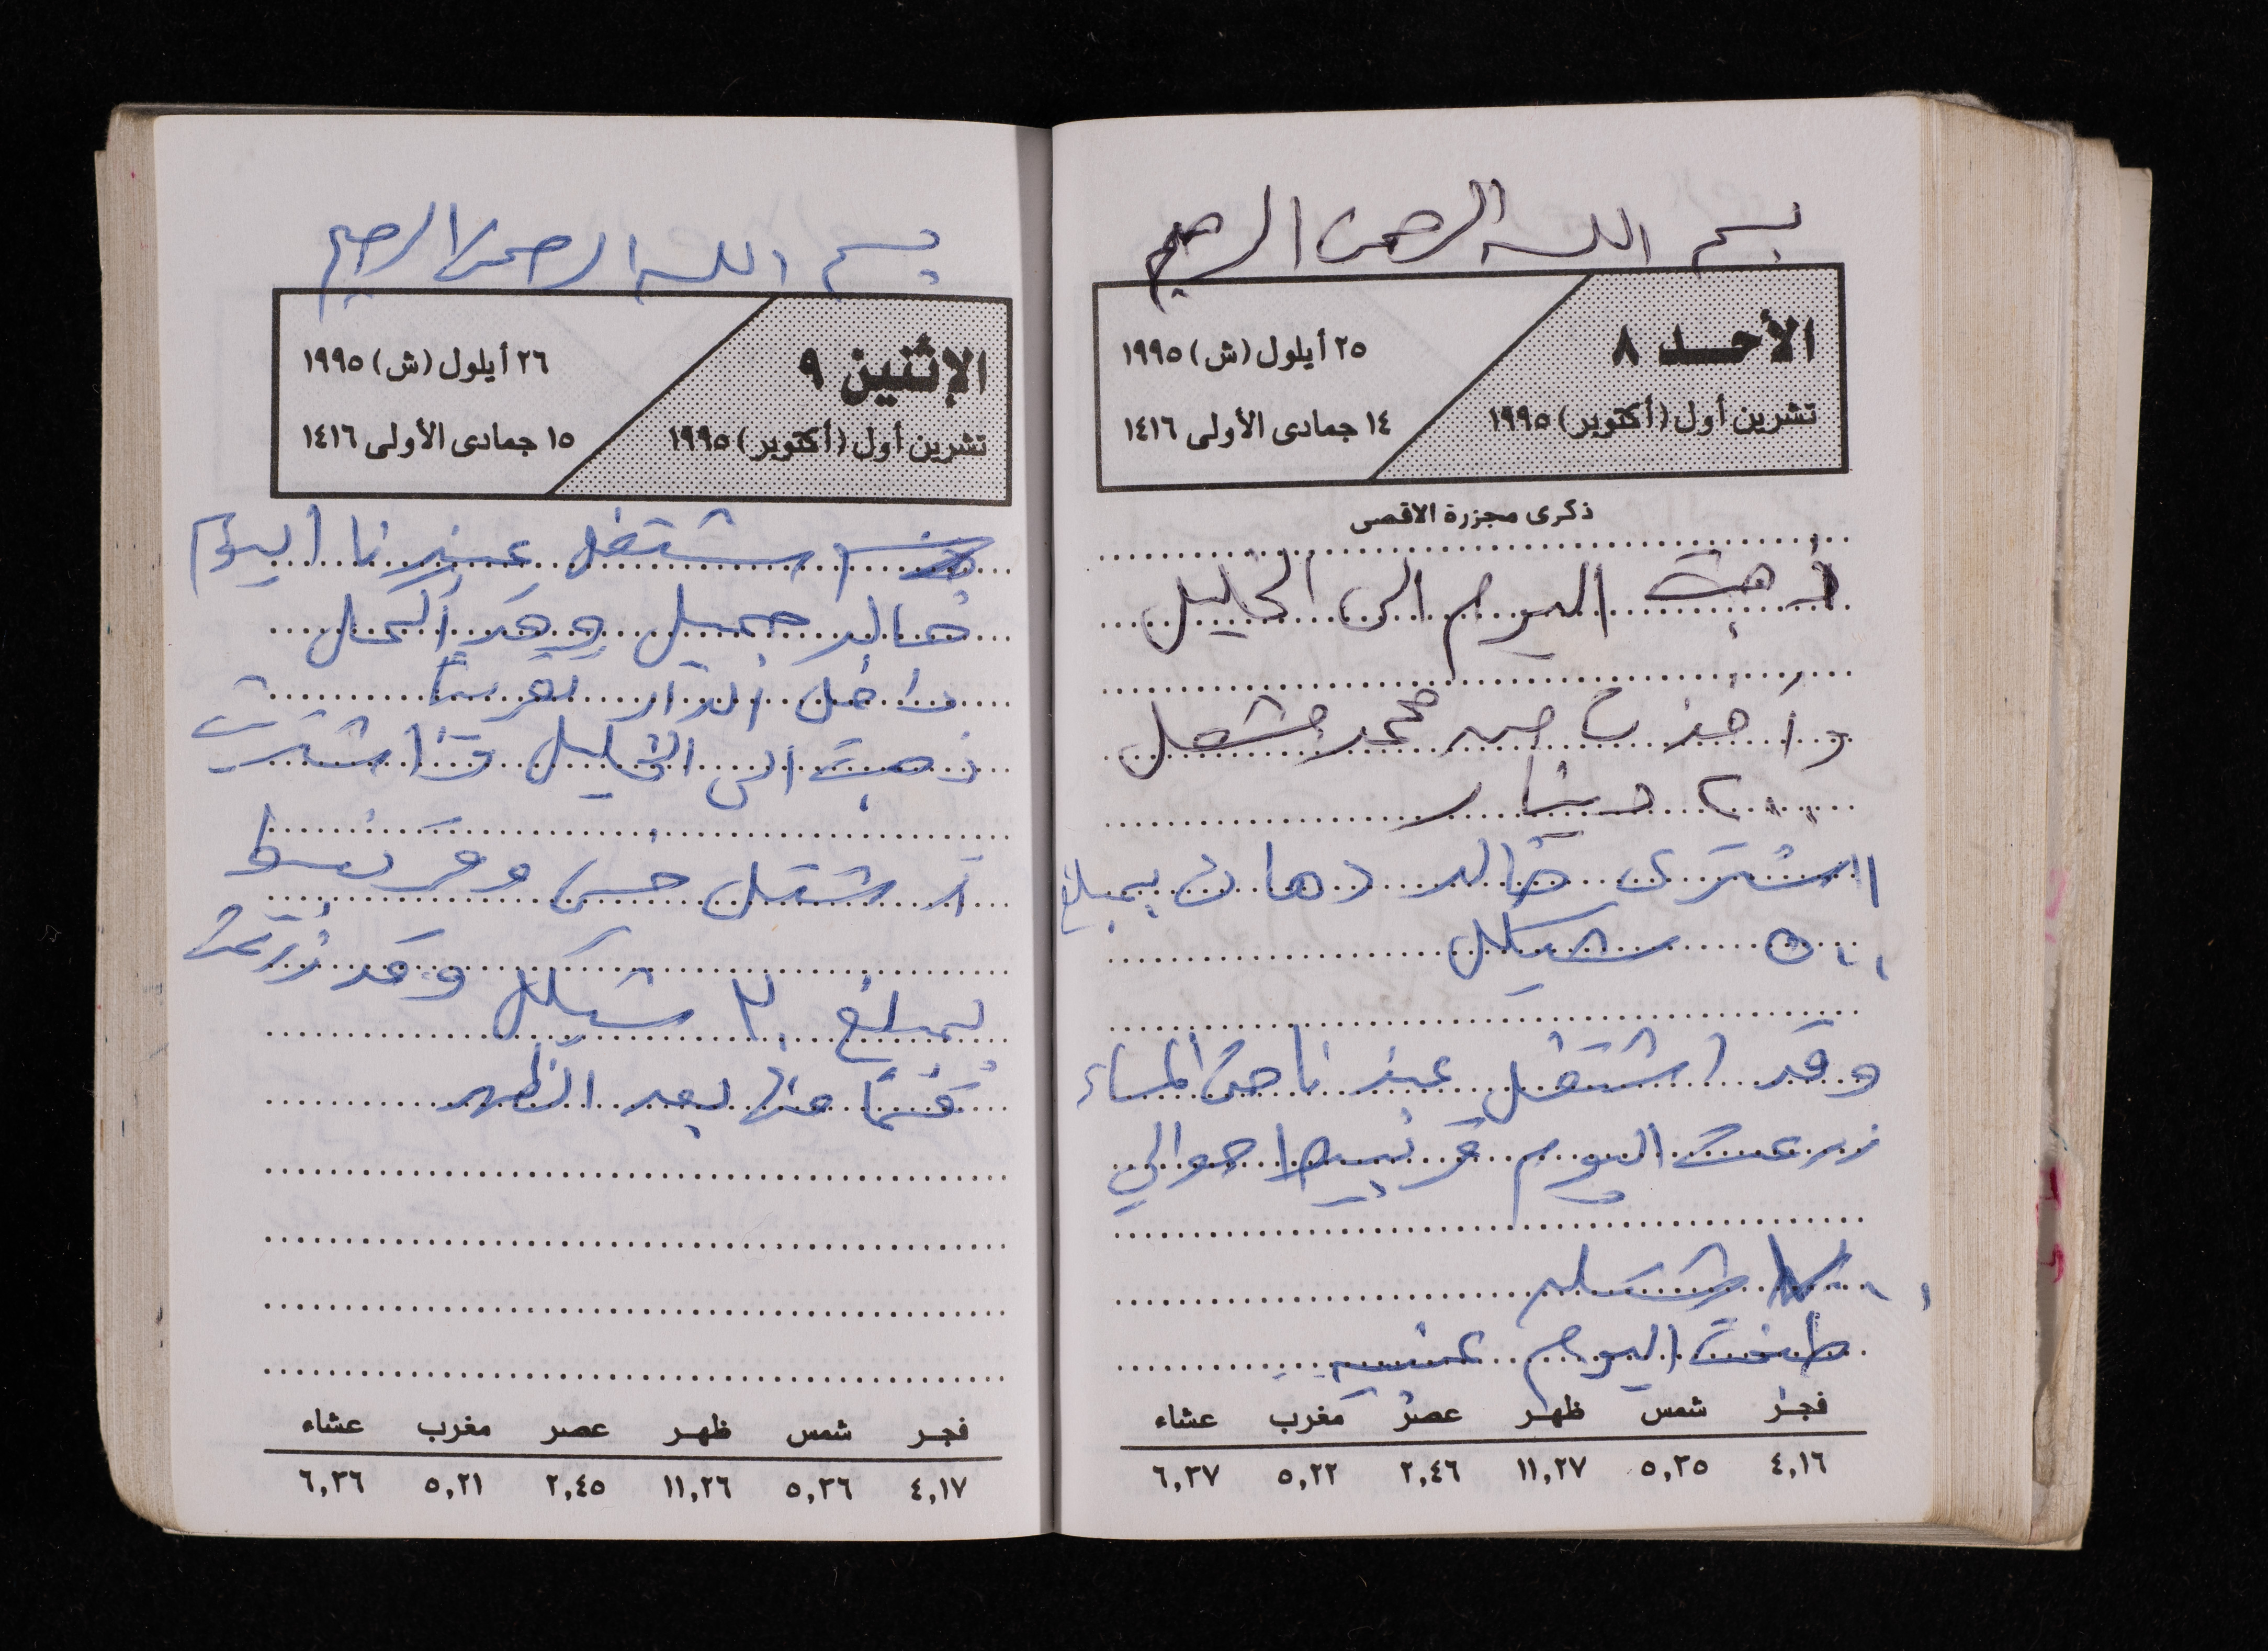 بسم الله الرحمن الرحيم
الأحد ٨
تشرين أول (أكتوبر) ١٩٩٥
٢٥ أيلول (ش) ١٩٩٥
١٤ جمادى الأولى ١٤١٦
ذكرى مجزرة الاقصى
ذهبت اليوم الى الخليل
وأخذت من محمد مشعل
٢٠٠ دينار
اشترى خالد دهان بمبلغ
٥٠٠ شيكل
وقد اشتغل عندنا حتى المساء
زرعت اليوم قرنبيط حوالي
شتله
طبخت اليوم
فجر شمس ظهر عصر مغرب عشاء
٤,١٦ ٥,٣٥ ١١,٢٧ ٢,٤٦ ٥,٢٢ ٦,٣٧
بسم الله الرحمن الرحيم
الإثنين ٩
تشرين أول (أكتوبر) ١٩٩٥
٢٦ أيلول (ش) ١٩٩٥
١٥ جمادى الأولى ١٤١٦
اشتغل عندنا اليوم
خالد جميل وقد أكمل
داخل الدار تقريباً
ذهبت الى الخليل واشتريت
اشتل خس وقرنبيط
بمبلغ ٣٠ شيكل وقد زرعت
قسماً منها بعد الظهر
فجر شمس ظهر عصر مغرب عشاء
٤,١٧ ٥,٣٦ ١١,٢٦ ٢,٤٥ ٥,٢١ ٦,٣٦